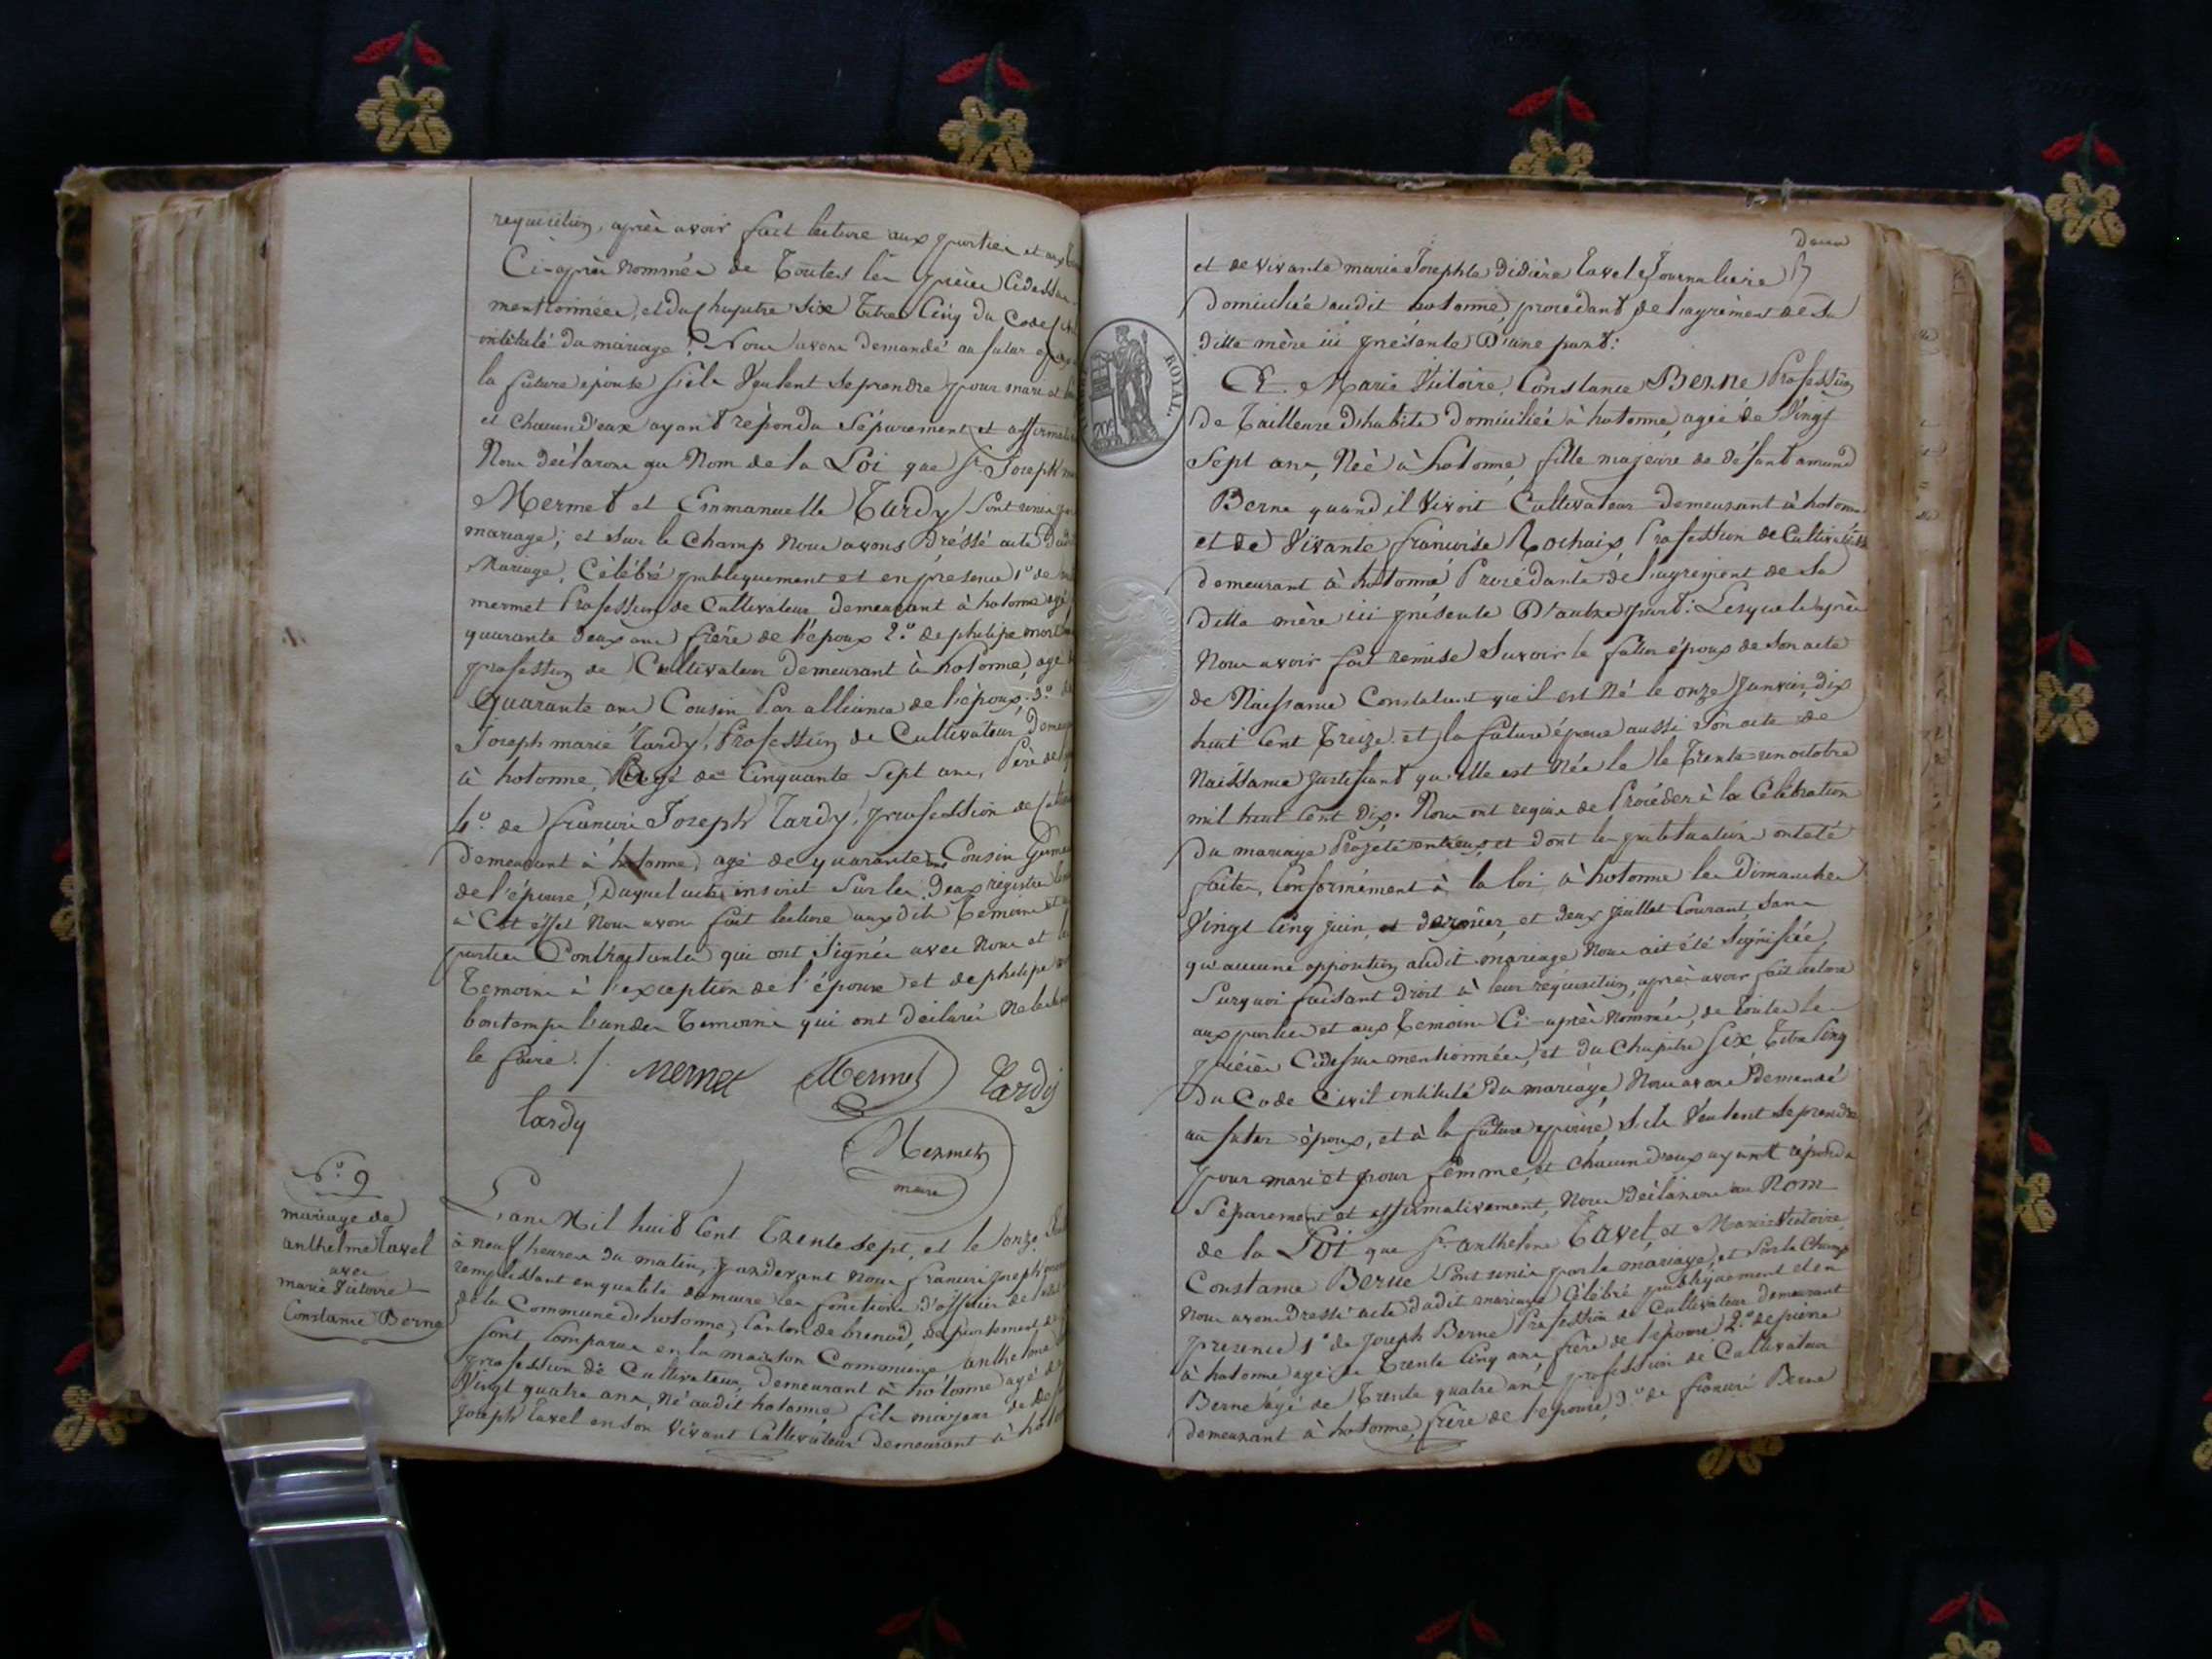 requisition, après avoir fait lecture aux parties et aux
Ci-après nommés de Toutes les pièces Cidessus
mentionnées, et du Chapitre Six Titre Cinq du Code
intitulé du mariage, Nous avons demandé au futur
la future épouse s'ils Veulent se prendre pour mari et
et chacun d'eux ayant répondu Séparement et
Nous déclarons au Nom de la Loi que Sr. Joseph
Mermet et Emmanuelle Tardy Sont unis
mariage; et sur le Champ Nous avons dréssé acte
Mariage, Célébré publiquement et en présence 1º de
mermet Profession de Cultivateur demeurant à hotonne
quarante deux ans frère de l'époux 2º. de philipe
profession de Cultivateur demeurant à hotonne, agé
Quarante ans Cousin Par alliance de l'époux; 3º.
Joseph marie Tardy, Profession de Cultivateur
à hotonne, agé de Cinquante Sept ans, Père de
4º. de françois Joseph Tardy, profession de
demeurant à hotonne, agé de quarante ans Cousin
de l'épouse, Duquel acte inscrit Sur les deux régistres
à Cet effet Nous avons fait lecture auxdits Temoins et
parties Contractantes qui ont Signés avec Nous et
Temoins à l'exception de l'épouse et de philipe
bontemps l'un des Temoins qui ont déclarés Ne
le faire ./.
Mermet Mermet Tardy
Tardy
Mermet
maire
Nº. 9
mariage de
anthelme Tavel
avec
marie Victoire
Constance Berne
L'an Mil huit Cent Trente sept, et le onze
à neuf heures du matin, pardevant Nous françois joseph
remplissant en qualité de maire les fonctions d'officier de
de la Commune d'hotonne, Canton de brenod, département
Sont Comparus en la maison Commune anthelme
profession de Cultivateur, demeurant à hotonne agé
Vingt quatre ans, Né audit hotonne, fils majeur
Joseph Tavel en son Vivant Cultivateur demeurant à
et de vivante marie Josephte didière Tavel Journalière
domiciliée audit hotonne, procédant de l'agrément de Sa
ditte mère ici présente D'une part:
Et Marie Victoire, Constance Berne Profession
de Tailleuse d'habits domiciliée à hotonne, agée de Vingt
Sept ans, Née à hotonne, fille majeure de défunt amand
Berne quand il Vivoit Cultivateur demeurant à hotonne
et de Vivante françoise Rochaix, Profession de Cultivatrice
demeurant à hotonne Procédante de l'agrement de Sa
ditte mère ici présente D'autre part: Lesquels après
Nous avoir fait remise Savoir le futur époux de Son acte
de Naissance Constatant qu'il est Né le onze Janvier, dix
huit Cent Treize. et la future épouse aussi Son acte de
Naissance Justifiant qu'elle est Née le le Trente-un octobre
mil huit Cent Dix. Nous ont requis de Procéder à la Célébration
du mariage Projeté entreux et dont les publications ont été
faites, Conformément à la loi, à hotonne les Dimanches
Vingt Cinq juin, et dernier, et deux Juillet Courant, Sans
qu'aucune opposition audit mariage Nous ait été Signifiée,
Surquoi faisant droit à leur réquisition, après avoir fait lecture
aux parties et aux Temoins Ci-après Nommés, de toutes les
pièces Cidessus mentionnées, et du Chapitre Six, Titre Cinq
du Code Civil intitulé Du mariage, Nous avons demandé
au futur époux, et à la future épouse S'ils Veulent se prendre
pour mari et pour femme, et chacun d'eux ayant répondu
Séparement et affirmativement, Nous déclarons au Nom
de la Loi que Sr. anthelme Tavel, et Marie Victoire
Constance Berne Sont unis par le mariage, et Sur le Champ
Nous avons dressé acte dudit mariage Célébré publiquement et en
presence 1º de joseph Berne Profession de Cultivateur demeurant
à hotonne agé de Trente Cinq ans, frère de l'épouse, 2.º de pierre
Berne agé de Trente quatre ans, profession de Cultivateur
demeurant à hotonne, frère de l'épouse, 3.º de françois Berne
ROYAL.